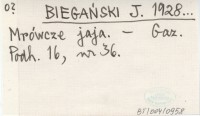 o?
BIEGAŃSKI J. 1928...
Mrówcze jaja. — Gaz.
Podh. 16, nr 36.
BT/004/0958